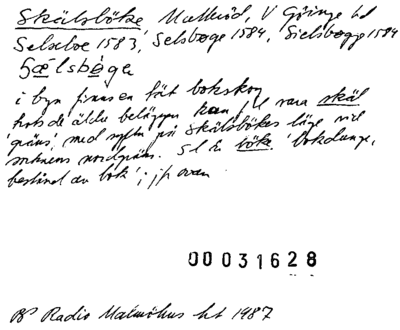 Skälsböke, Matteröd, V Göinge hd
Selseboe 1583, Selsboge 1584, Sielsbogge 1584
Sælsbøge
i byn finns en tät bokskog
trots de äldre beläggen kan fl vara skäl
'gräns', med syftn på Skälsbökes läge vid
socknens nordgräns. sl är böke 'bokdunge,
bestånd av bok'; jfr ovan
00031628
Radio Malmöhus ht 1987